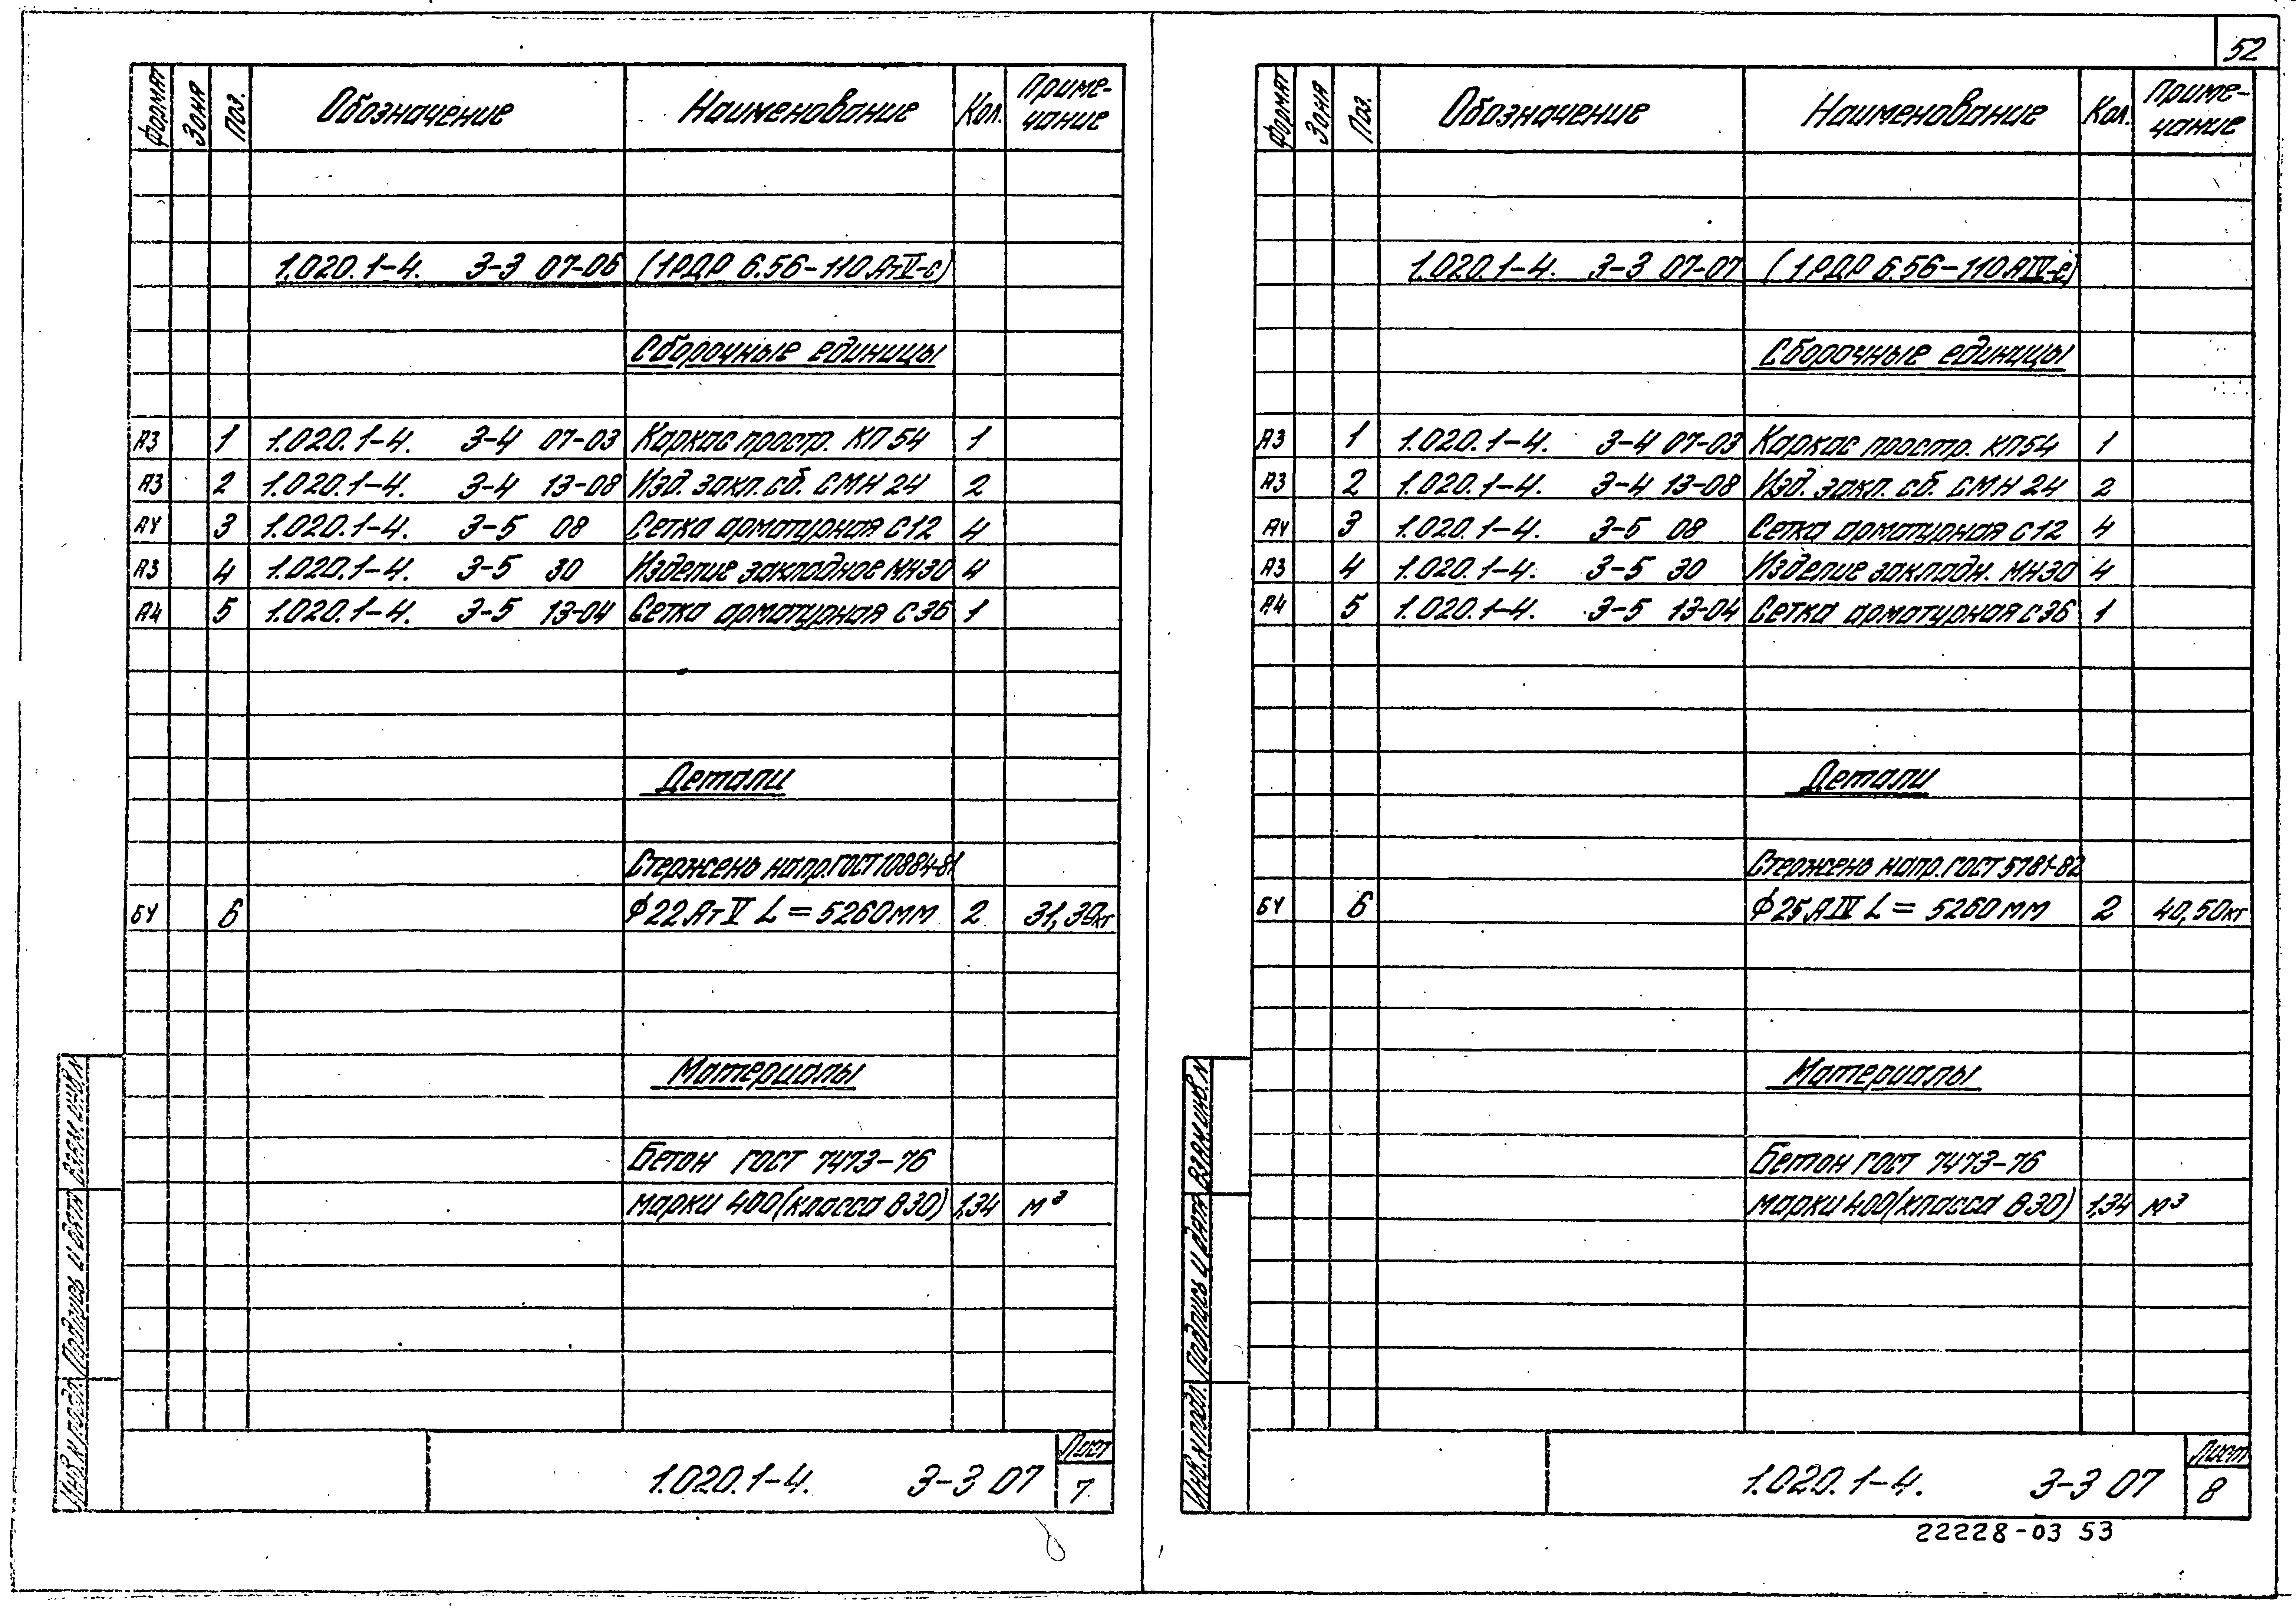 52
Формат Зона Поз. Обозначение Наименование Кол. Приме-
чание
1.020.1-4. 3-3 07-06 (1РДР 6.56-110 АтV-с)
Сборочные единицы
А3 1 1.020.1-4. 3-4 07-03 Каркас простр. КП 54 1
А3 2 1.020.1-4. 3-4 13-08 Изд. закл. сб. СМН 24 2
А4 3 1.020.1-4. 3-5 08 Сетка арматурная С12 4
А3 4 1.020.1-4. 3-5 30 Изделие закладное МН30 4
А4 5 1.020.1-4. 3-5 13-04 Сетка арматурная С36 1
Детали
Стержень напр. ГОСТ 10884-81
БЧ 6 ϕ22 АтV L=5260мм 2 31,39кг
Материалы
Бетон ГОСТ 7473-76
марки 400 (класса В30) 1,34 м³
Инв. N подл. Подпись и дата Взам. инв. N
1.020.1-4. 3-3 07
Лист
7
Формат Зона Поз. Обозначение Наименование Кол. Приме-
чание
1.020.1-4. 3-3 07-07 (1РДР 6.56-110 АIV-с)
Сборочные единицы
А3 1 1.020.1-4. 3-4 07-03 Каркас простр. КП54 1
А3 2 1.020.1-4. 3-4 13-08 Изд. закл. сб. СМН 24 2
А4 3 1.020.1-4. 3-5 08 Сетка арматурная С12 4
А3 4 1.020.1-4. 3-5 30 Изделие закладн. МН30 4
А4 5 1.020.1-4. 3-5 13-04 Сетка арматурная С36 1
Детали
Стержень напр. ГОСТ 5781-82
БЧ 6 ϕ25 АIV L=5260мм 2 40,50кг
Материалы
Бетон ГОСТ 7473-76
марки 400 (класса В30) 1,34 м³
Инв. N подл. Подпись и дата Взам. инв. N
1.020.1-4. 3-3 07
Лист
8
22228-03 53